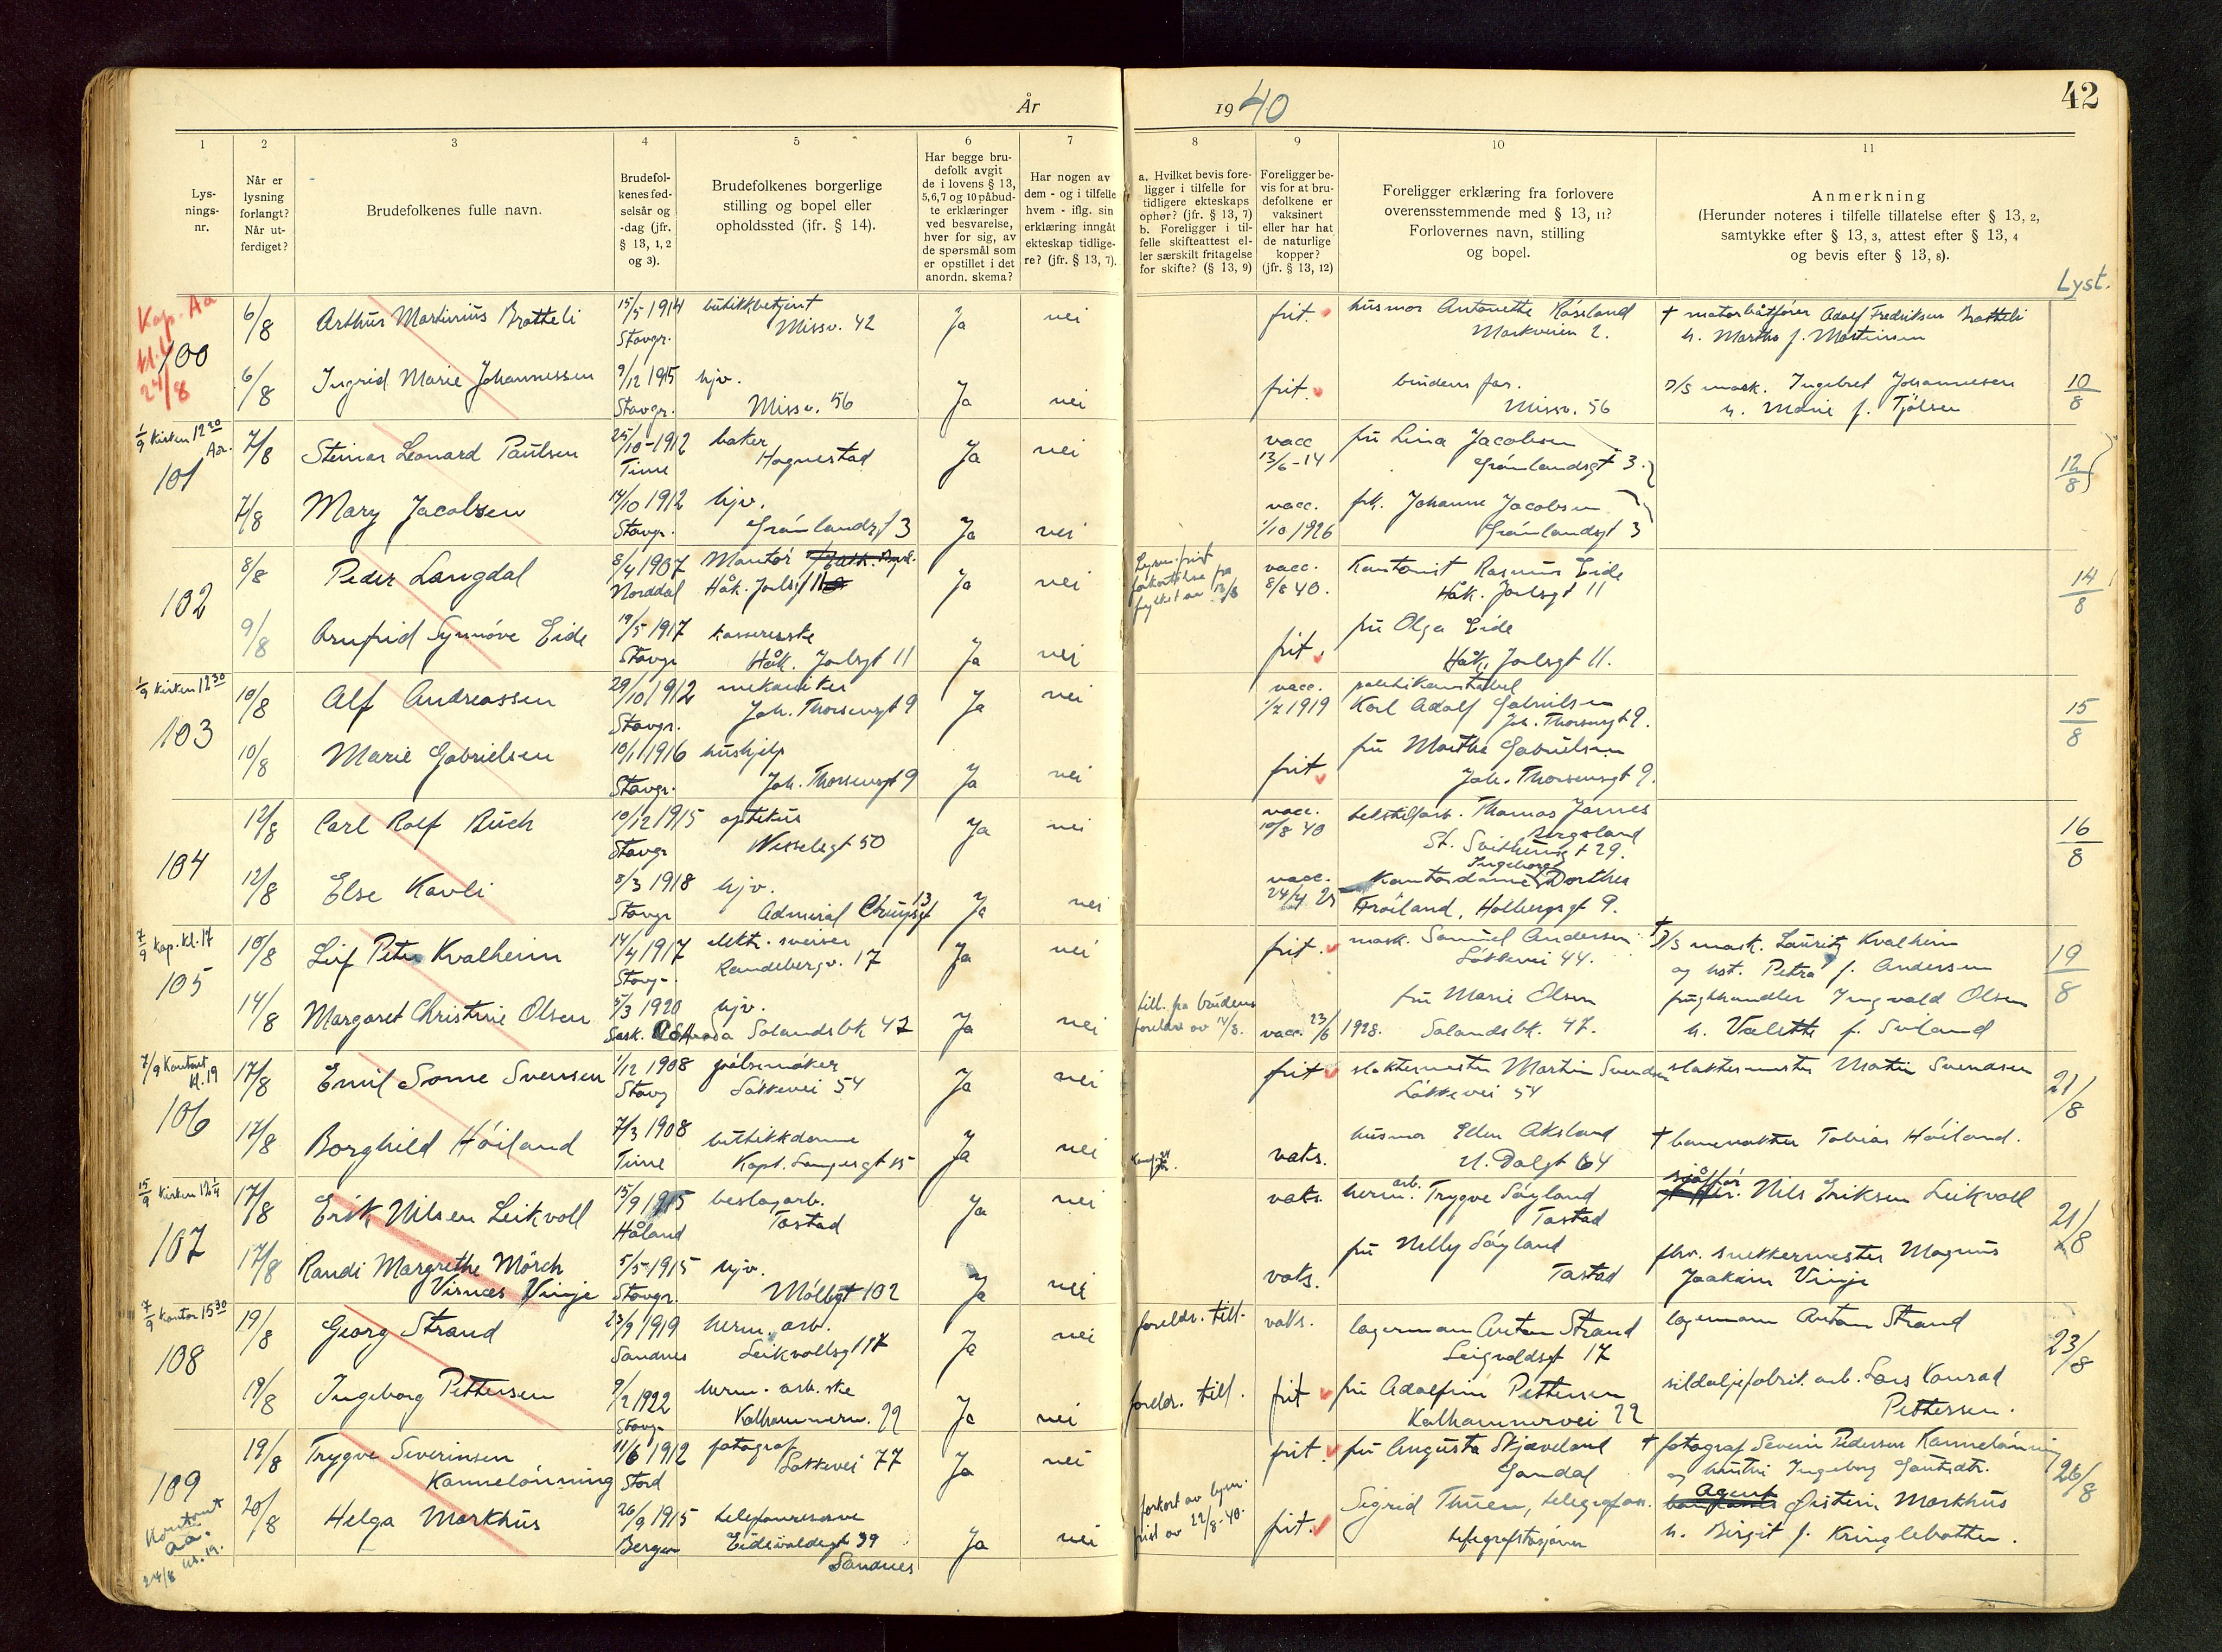 År
1940
42
1
2
3
4
5
6
7
8
9
10
11
Lys-
nings-
nr.
Når er
lysning
forlangt?
Når ut-
ferdiget?
Brudefolkenes fulle navn.
Brudefol-
kenes fød-
selsår og
-dag (jfr.
§ 13, 1, 2
og 3).
Brudefolkenes borgerlige
stilling og bopel eller
opholdssted (jfr. § 14).
Har begge bru-
defolk avgit
de i lovens § 13,
5,6,7 og 10 påbud-
te erklæringer
ved besvarelse,
hver for sig, av
de spørsmål som
er opstillet i det
anordn. skema?
Har nogen av
dem - og i tilfelle
hvem - iflg. sin
erklæring inngåt
ekteskap tidlige-
re? (jfr. § 13, 7).
a. Hvilket bevis fore-
ligger i tilfelle for
tidligere ekteskaps
ophør? (jfr. § 13, 7)
b. Foreligger i til-
felle skifteattest el-
ler særskilt fritagelse
for skifte? (§ 13, 9)
Foreligger be-
vis for at bru-
defolkene er
vaksinert
eller har hat
de naturlige
kopper?
(jfr. § 13, 12)
Foreligger erklæring fra forlovere
overensstemmende med § 13, 11?
Forlovernes navn, stilling
og bopel.
Anmerkning
(Herunder noteres i tilfelle tillatelse efter § 13, 2,
samtykke efter § 13, 3, attest efter § 13, 4
og bevis efter § 13, 8).
Lyst.
Kap. Aa
24/8
100
6/8 Arthur Martinius Bratteli 15/5 1914 butikkbetjent
Stavgr. Missv. 42 Ja nei
frit. husmor Antonette Råssland
Markveien 2.
† motorbåtfører Adolf Fredriksen Bratteli
h. Martha f. Martinsen
6/8 Ingrid Marie Johannessen 9/12 1915 hjv.
Stavgr. Missv. 56 Ja nei
frit. brudens far.
Missv. 56
D/S mask. Ingebret Johannesen
h. Marie f. Tjølsen
10/8
1/9 Kirken 12 30
Aa.
101
7/8 Steinar Leonard Paulsen 25/10-1912 baker
Time Hognestad Ja nei
vacc 13/6-14 fru Lina Jacobsen
Grønlandsgt 3.
12/8
7/8 Mary Jacobsen 14/10 1912 hjv.
Stavgr. Grønlandsgt 3 Ja nei
vacc. 1/10 1926 frk. Johanne Jacobsen
Grønlandsgt 3
102
8/8 Peder Langdal 8/4 1907 Mantør
Norddal Håk. Jarlsgt 11 Ja nei
vacc. 8/8 40. Kantonist Rasmus Eide
Håk. Jarlsgt 11
14/8
9/8 Arnfrid Synnøve Eide 19/5 1917 kassererske
Stavgr Håk. Jarlsgt 11 Ja nei
frit. fru Olga Eide
Håk. Jarlsgt 11.
1/9 Kirken 12 30
103
10/8 Alf Andreassen 29/10 1912 mekaniker
Stavgr. Joh. Thorsensgt 9 Ja nei
vacc. 1/7 1919 politikonstabel
Karl Adolf Gabrielsen
Joh. Thorsensgt 9.
15/8
10/8 Marie Gabrielsen 10/1 1916 hushjelp
Stavgr. Joh. Thorsensgt 9 Ja nei
frit fru Marthe Gabrielsen
Joh. Thorsensgt 9.
104
12/8 Carl Rolf Buch 10/12 1915 optikus
Stavgr Wesselsgt 50 Ja nei
vacc. 10/8 40 tekstilarb. Thomas James
Bergsland
St. Svithunsgt 29.
16/8
12/8 Else Kavli 8/3 1918 hjv.
Stavgr Admiral Cruysgt 13 Ja nei
vacc. 24/4 25 Kontordame Ingeborg Dorthea
Frøiland, Holbergsgt 9.
7/9 Kap. Kl. 17
105
10/8 Leif Peter Kvalheim 14/4 1917 elektr. sveiser
Stavgr. Randebergv. 17 Ja nei
frit. mask. Samuel Andersen
Løkkevei 44.
† D/S mask. Lauritz Kvalheim
og hst. Petra f. Andersen
19/8
14/8 Margaret Christine Olsen 5/3 1920 hjv.
Sask. Canada Solandsbk 47 Ja nei
till. fra brudens
foreldre av 14/8.
vacc. 23/6 1928. fru Marie Olsen
Solandsbk. 47.
frugthandler Ingvald Olsen
h. Valette f. Suiland
7/9 Kontoret
kl. 19
106
17/8 Emil Some Svensen 1/12 1908 pølsemaker
Stavg Løkkevei 54 Ja nei
frit slaktermester Martin Svendsen
Løkkevei 54
slaktermester Martin Svendsen
21/8
17/8 Borghild Høiland 7/3 1908 butikkdame
Time Kapt. Langesgt 15 Ja nei
vaks. husmor Ellen Aksland
N. Dalgt 64
† banevokter Tobias Høiland.
15/9 Kirken 12 1/4
107
17/8 Erik Nilsen Leikvoll 15/9 1915 beslagarb.
Håland Tastad Ja nei
vaks. herm. arb. Trygve Søyland
Tastad
sjåfør Nils Eriksen Leikvoll
21/8
17/8 Randi Margrethe Mørch
Visnæs Vinje 5/5-1915 hjv.
Stavgr. Møllegt 102 Ja nei
vaks. fru Nelly Søyland
Tastad
fhv. snekkermester Magnus
Joakim Vinje
7/9 Kontor 15 30
108
19/8 Georg Strand 23/9 1919 herm. arb.
Sandnes Leikvollsgt 17 Ja nei
foreldr. till. vaks. lagermann Anton Strand
Leigvoldsgt 17
lagermann Anton Strand
23/8
19/8 Ingeborg Pettersen 9/2 1922 herm. arb.ske
Stavgr Kalhammerv. 22 Ja nei
foreldr. till. frit fru Adolfine Pettersen
Kalhammervei 22
sildoljefabrik. arb. Lars Konrad
Pettersen.
109
19/8 Trygve Severinsen
Kannelønning 11/6 1912 fotograf
Stord Løkkevei 77 Ja nei
frit. fru Augusta Skjæveland
Gandal
† fotograf Severin Pedersen Kannelønning
og hustru Ingeborg Gautesdtr.
26/8
Kontoret
aa.
kl. 19.
24/8
20/8 Helga Markhus 26/9 1915 telefon
Bergen Eidsvoldsgt 39
Sandnes Ja nei
forkort av lysn.
frist av 22/8-40.
frit. Sigrid Thuen, telegrafass.
telegrafstasjonen
Agent Øistein Markhus
h. Birgit f. Kringlebotten.